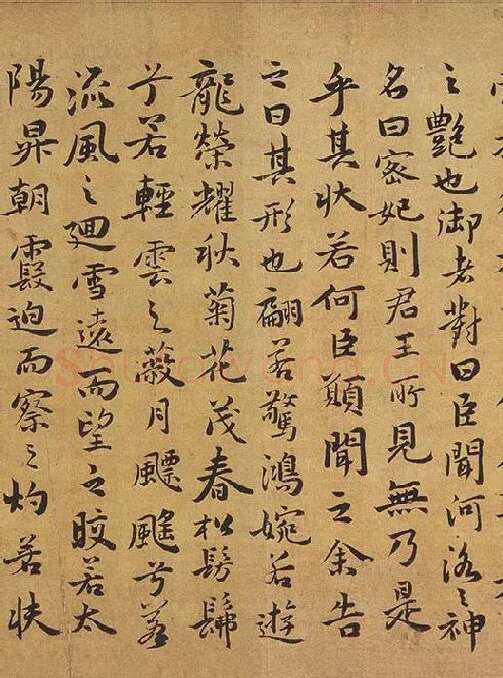 之艷也御者對曰臣聞河洛之神
名曰密妃則君王所見無乃是
乎其狀若何臣願聞之余告
之曰其形也翩若驚鴻婉若遊
龍榮耀秋菊花茂春松髣髴
兮若輕雲之蔽月飄颻兮若
流風之廻雪遠而望之皎若太
陽昇朝霞迫而察之灼若扶